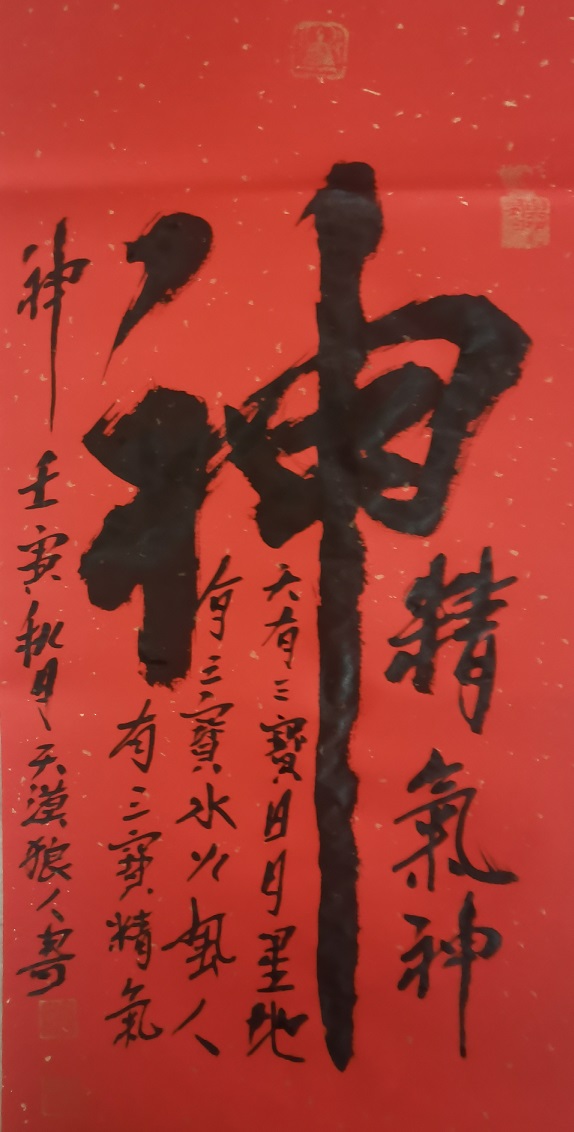 神
精氣神
天有三寶日月星地
有三寶水火風人
有三寶精氣
神
壬寅秋月天漠狼人書